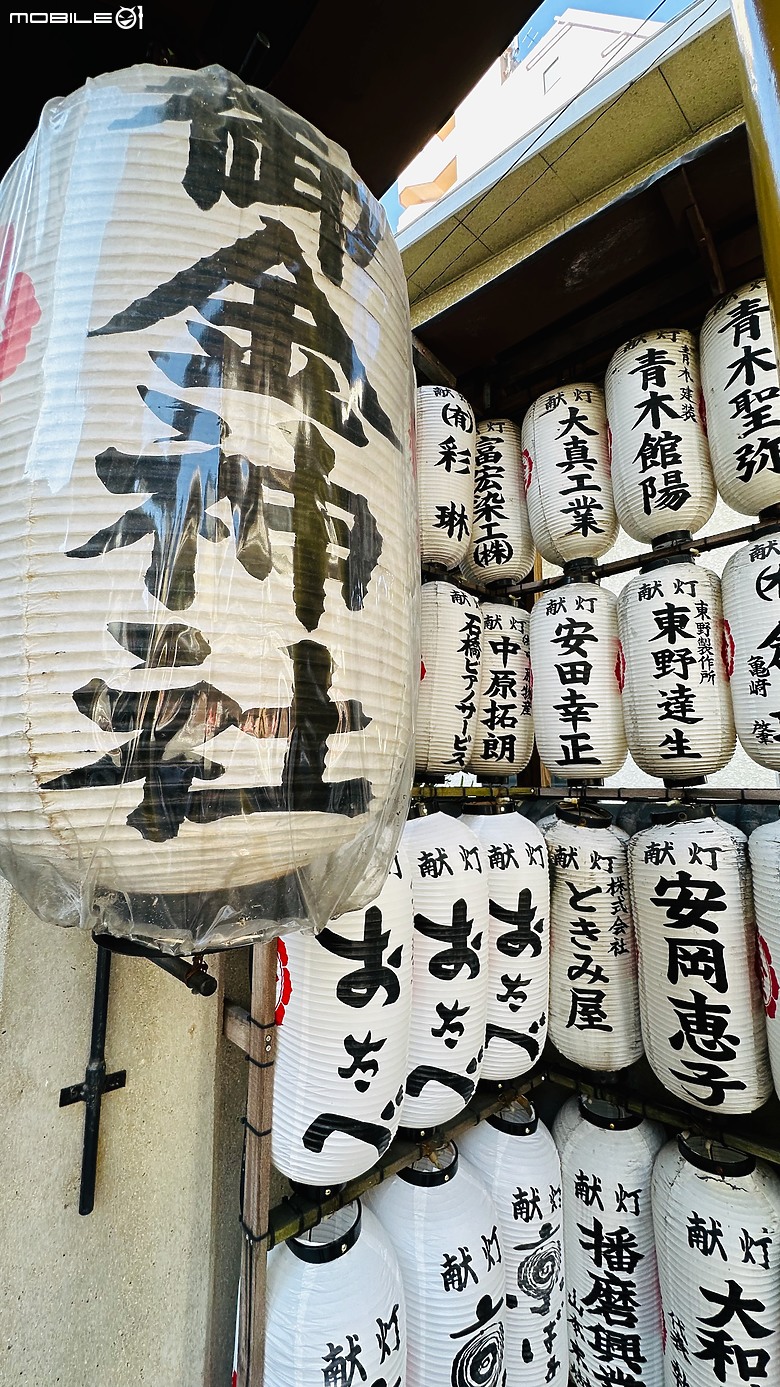 MOBILE01
御金神社
献灯
(有)彩琳
灯
富宏染工(株)
献灯
大真工業
献灯
青木建装
青木館陽
献灯
青木聖弥
献灯
石橋ピアノサービス
献灯
中原拓朗
献灯
安田幸正
献灯
東野製作所
東野達生
献灯
亀崎
肇
おたべ
献灯
おたべ
献灯
おたべ
献灯
株式会社
ときみ屋
献灯
安岡恵子
献灯
献灯
献灯
献灯
播磨興業
献灯
大和